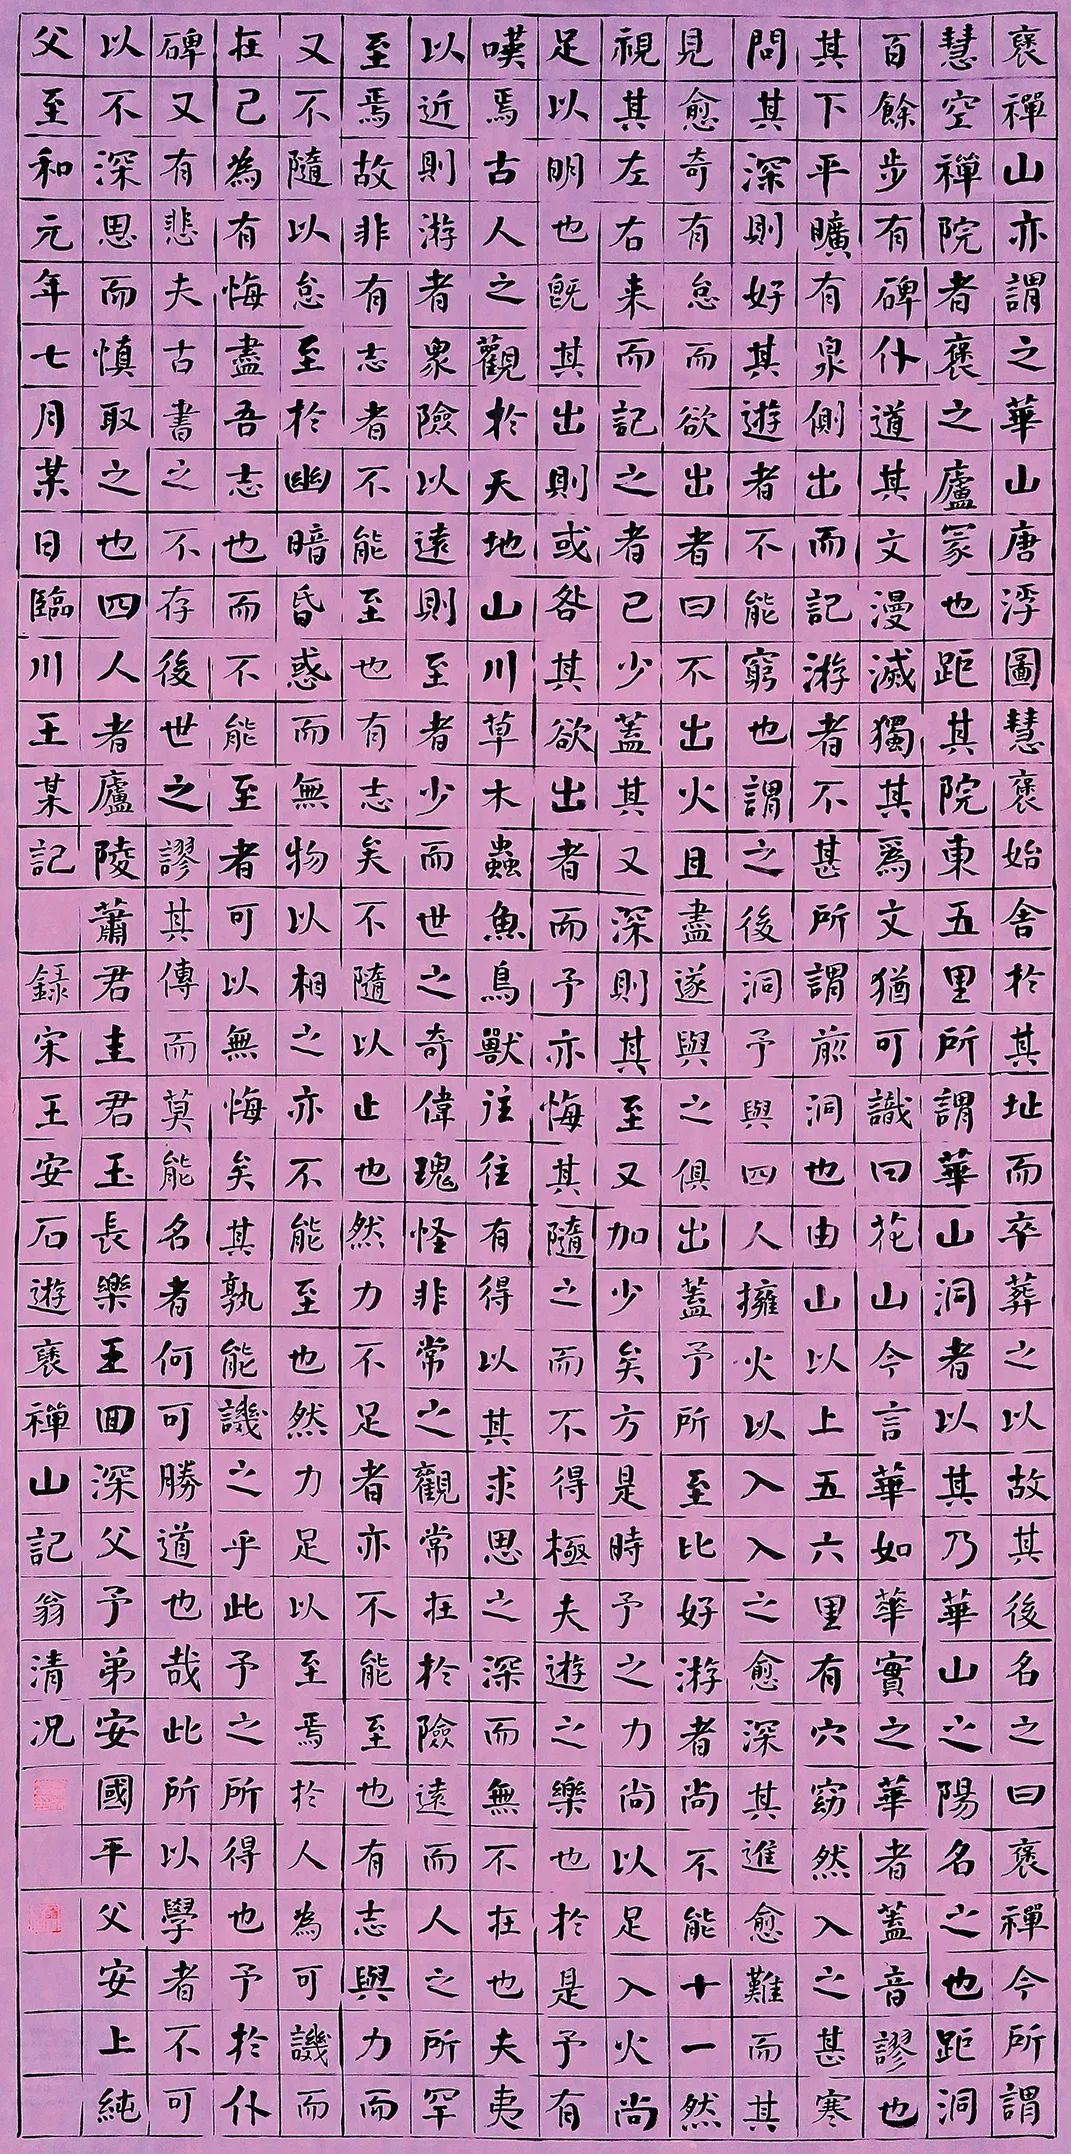 褒禪山亦謂之華山唐浮圖慧褒始舍於其址而卒葬之以故其後名之曰褒禪今所謂
慧空禪院者褒之廬冢也距其院東五里所謂華山洞者以其乃華山之陽名之也距洞
百餘步有碑仆道其文漫滅獨其爲文猶可識曰花山今言華如華實之華者蓋音謬也
其下平曠有泉側出而記游者不甚所謂前洞也由山以上五六里有穴窈然入之甚寒
問其深則好其遊者不能窮也謂之後洞予與四人擁火以入入之愈深其進愈難而其
見愈奇有怠而欲出者曰不出火且盡遂與之俱出蓋予所至比好游者尚不能十一然
視其左右来而記之者已少蓋其又深則其至又加少矣方是時予之力尚以足入火尚
足以明也既其出則或咎其欲出者而予亦悔其隨之而不得極夫遊之樂也於是予有
嘆焉古人之觀於天地山川草木蟲魚鳥獸往往有得以其求思之深而無不在也夫夷
以近則游者衆險以遠則至者少而世之奇偉瑰怪非常之觀常在於險遠而人之所罕
至焉故非有志者不能至也有志矣不隨以止也然力不足者亦不能至也有志與力而
又不隨以怠至於幽暗昏惑而無物以相之亦不能至也然力足以至焉於人為可譏而
在己為有悔盡吾志也而不能至者可以無悔矣其孰能譏之乎此予之所得也予於仆
碑又有悲夫古書之不存後世之謬其傳而莫能名者何可勝道也哉此所以學者不可
以不深思而慎取之也四人者廬陵蕭君圭君玉長樂王回深父予弟安國平父安上純
父至和元年七月某日臨川王某記 錄宋王安石遊褒禪山記翁清况